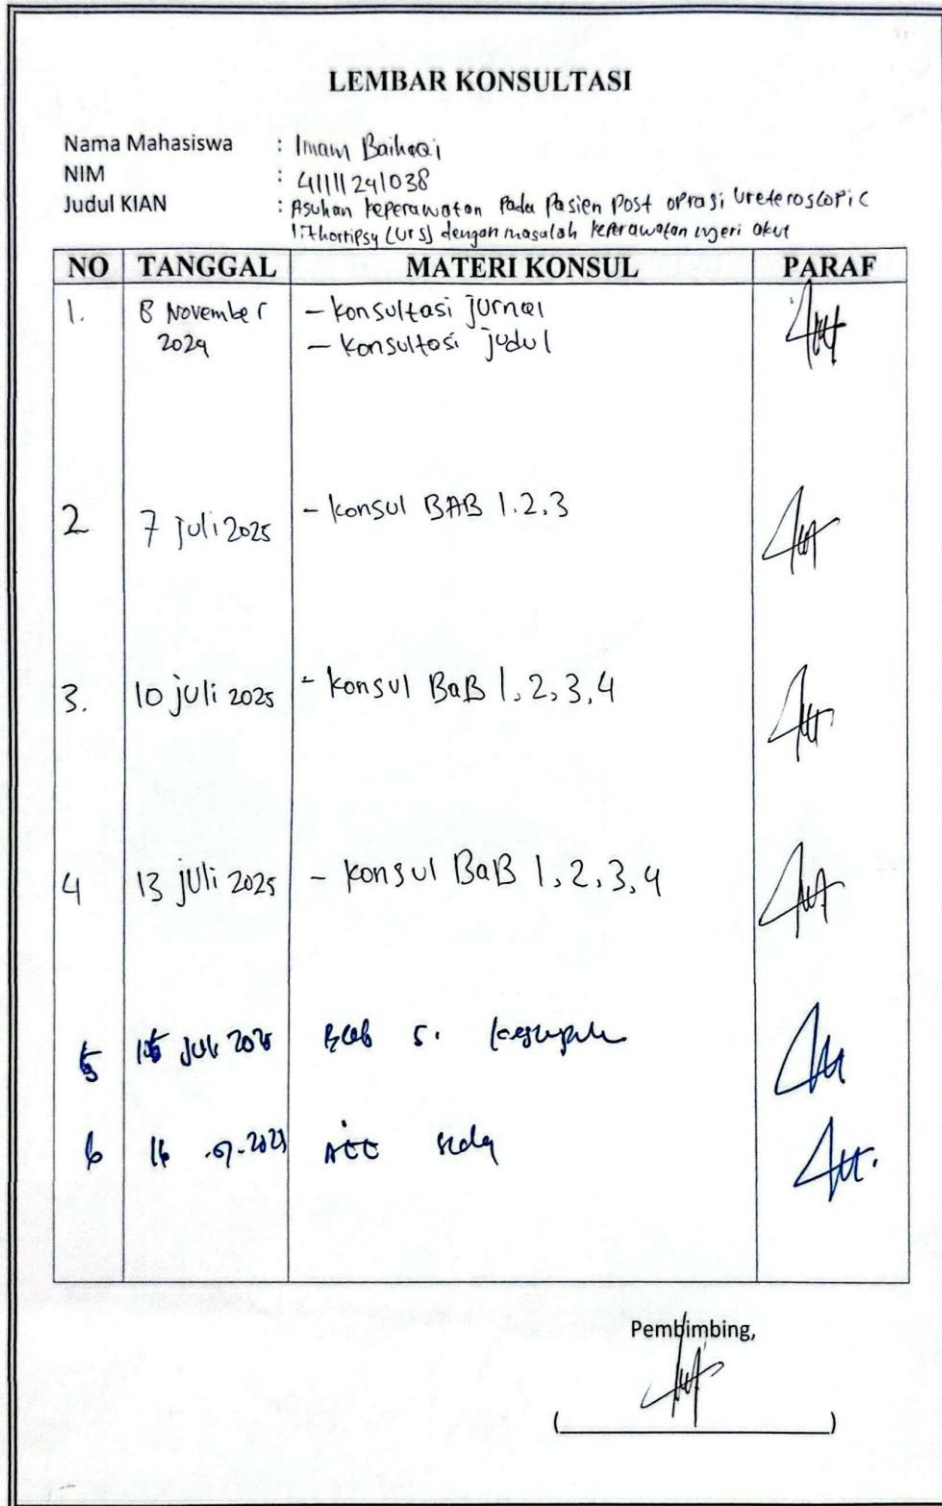 LEMBAR KONSULTASI
Nama Mahasiswa : Imam Baihaqi
NIM : 41111241038
Judul KIAN : Asuhan keperawatan Pada Pasien Post oprasi Ureteroscopic
lithortipsy (URS) dengan masalah keperawatan nyeri akut
NO TANGGAL MATERI KONSUL PARAF
1. 8 November - konsultasi jurnal
2024 - konsultasi judul
2 7 juli 2025 - konsul BAB 1.2.3
3. 10 juli 2025 - konsul BaB 1, 2, 3, 4
4 13 juli 2025 - konsul BaB 1, 2, 3, 4
5 15 Juli 2025 Bab 5.
6 16 ACC
Pembimbing,
(                    )